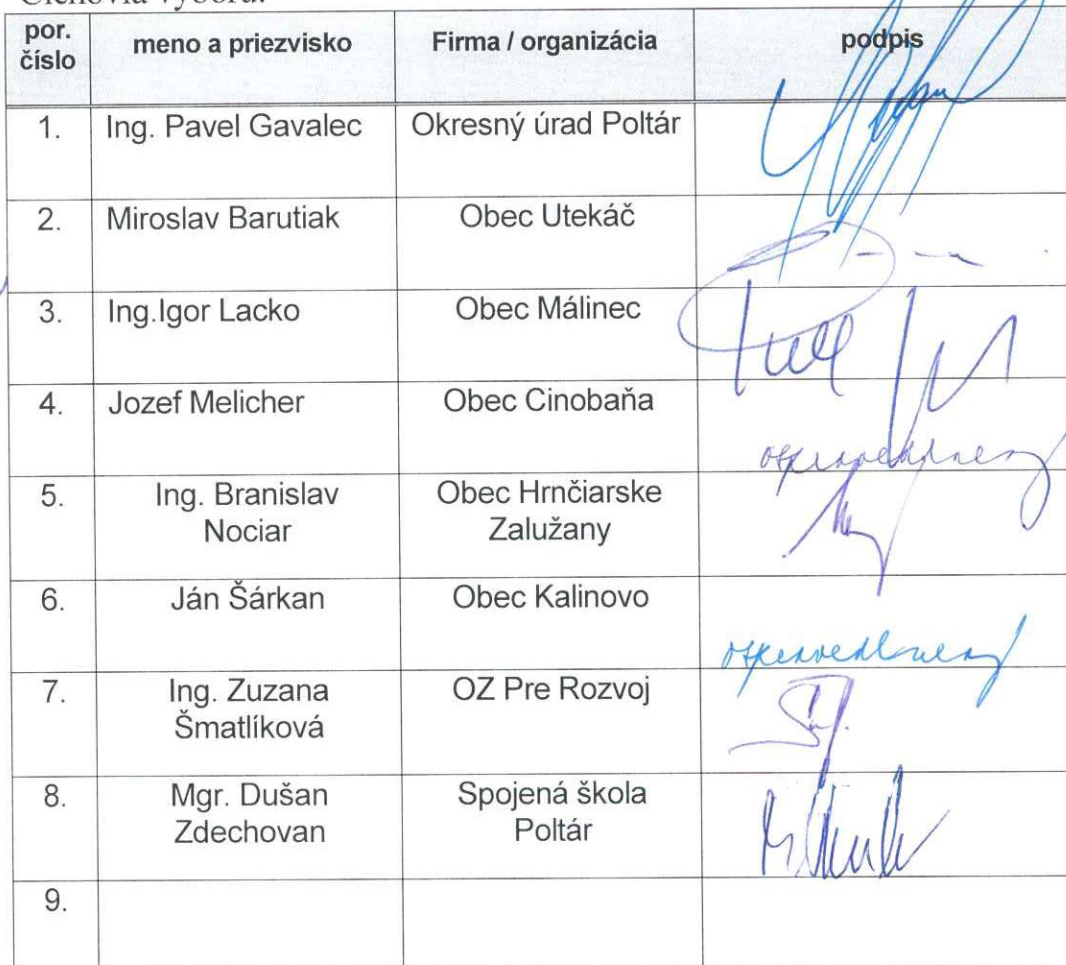 Členovia výboru:
por. číslo meno a priezvisko Firma / organizácia podpis
1. Ing. Pavel Gavalec Okresný úrad Poltár
2. Miroslav Barutiak Obec Utekáč
3. Ing.Igor Lacko Obec Málinec
4. Jozef Melicher Obec Cinobaňa ospravedlnený
5. Ing. Branislav Nociar Obec Hrnčiarske Zalužany
6. Ján Šárkan Obec Kalinovo ospravedlnený
7. Ing. Zuzana Šmatlíková OZ Pre Rozvoj
8. Mgr. Dušan Zdechovan Spojená škola Poltár
9.